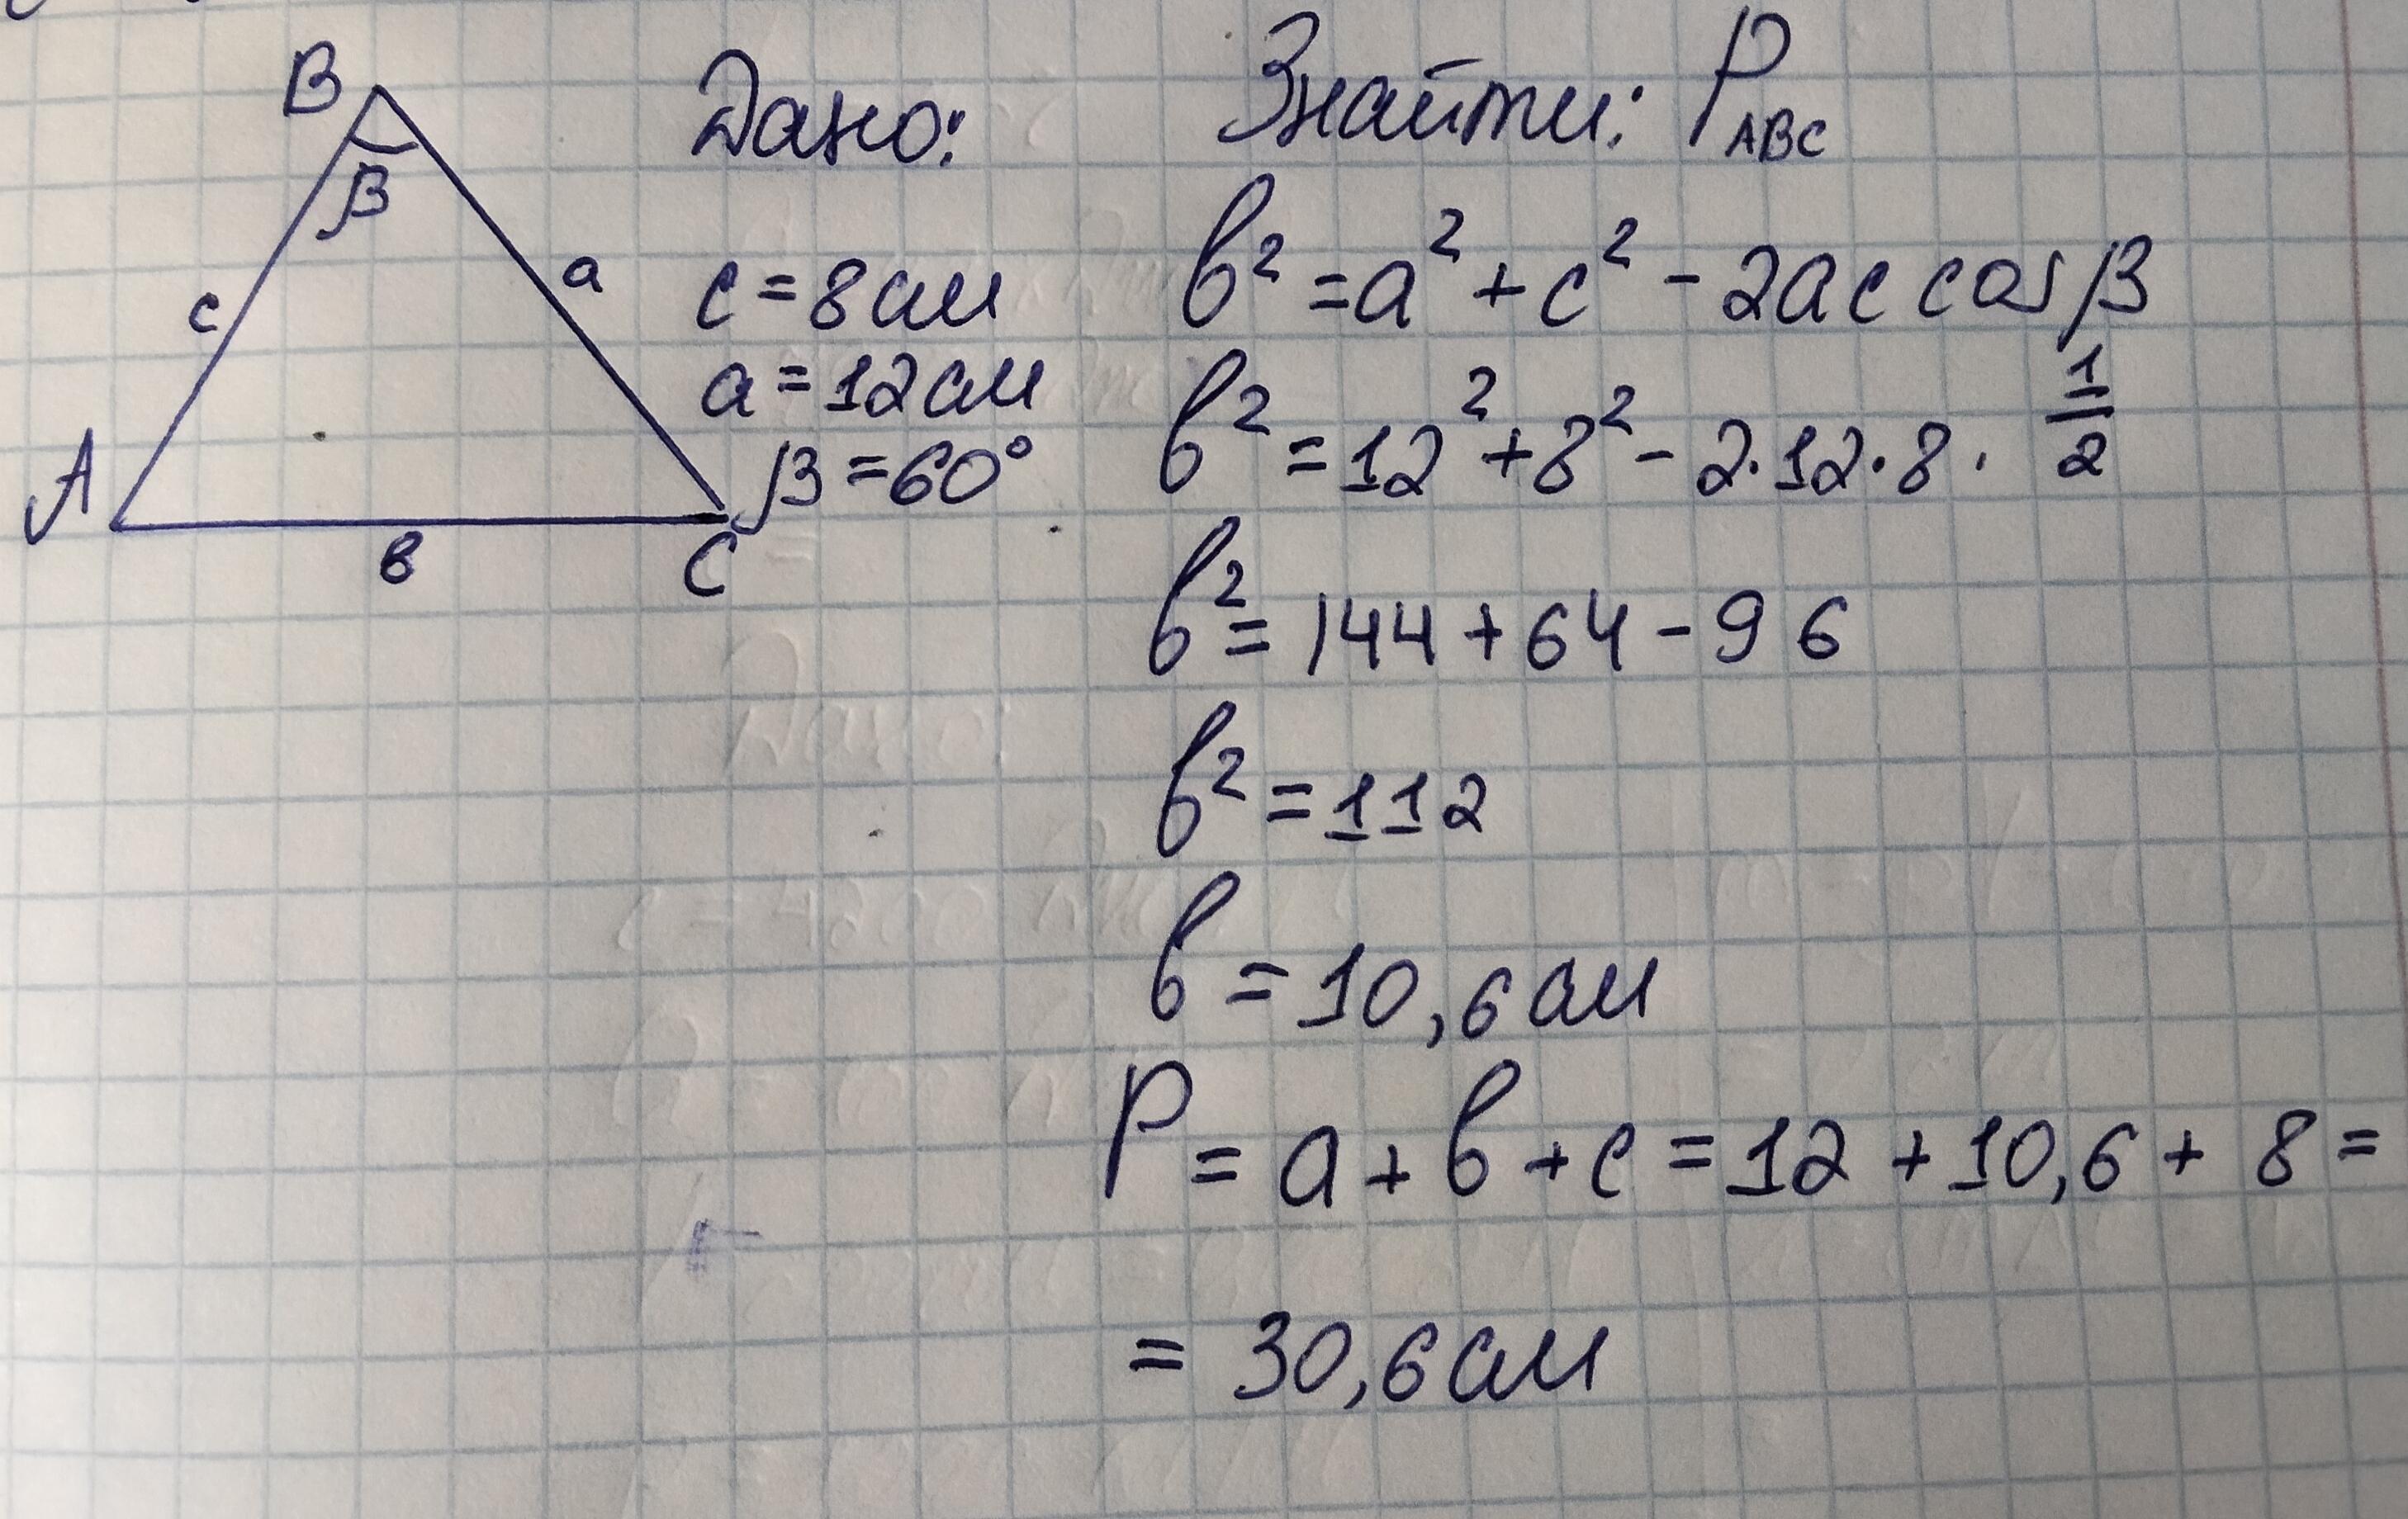 B
β
c
a
A
в
C
Дано:
c = 8 см
a = 12 см
β = 60°
Знайти: P_ABC
в² = a² + c² - 2ac cos β
в² = 12² + 8² - 2·12·8 · 1/2
в² = 144 + 64 - 96
в² = 112
в = 10,6 см
P = a + в + c = 12 + 10,6 + 8 =
= 30,6 см